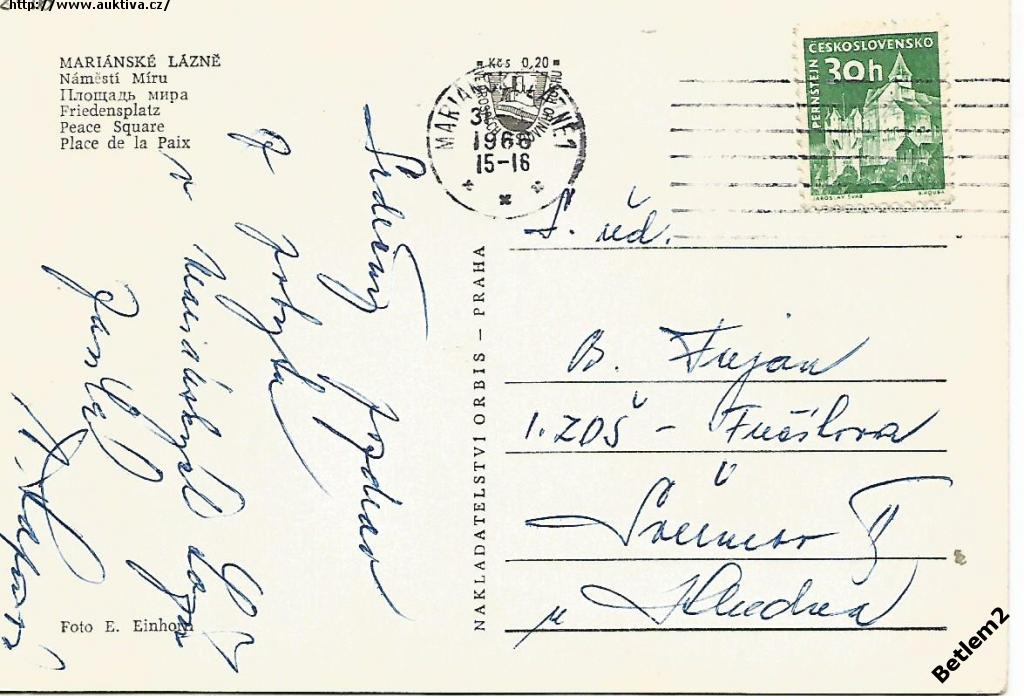 http://www.auktiva.cz/
MARIÁNSKÉ LÁZNĚ
Náměstí Míru
Площадь мира
Friedensplatz
Peace Square
Place de la Paix
Srdečný pozdrav
z pobytu
v Mariánských Lázn
Foto E. Einhorn
NAKLADATELSTVÍ ORBIS — PRAHA
Kčs 0,20
MARIÁNSKÉ LÁZNĚ 1
1966
15-16
ČESKOSLOVENSKO
30h
PERNŠTEJN
JAROSLAV ŠVÁB
S. úd.
B. Fujan
1. ZDŠ – Fučíkova
Švermov II
u Kladna
Betlem2